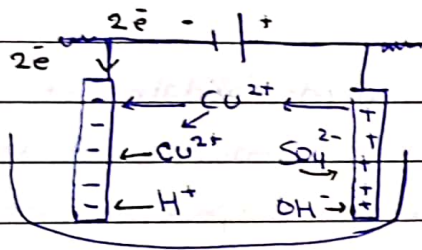 2e⁻ - +
2e⁻
- Cu²⁺ +
- Cu²⁺ SO₄²⁻ +
- H⁺ OH⁻ +